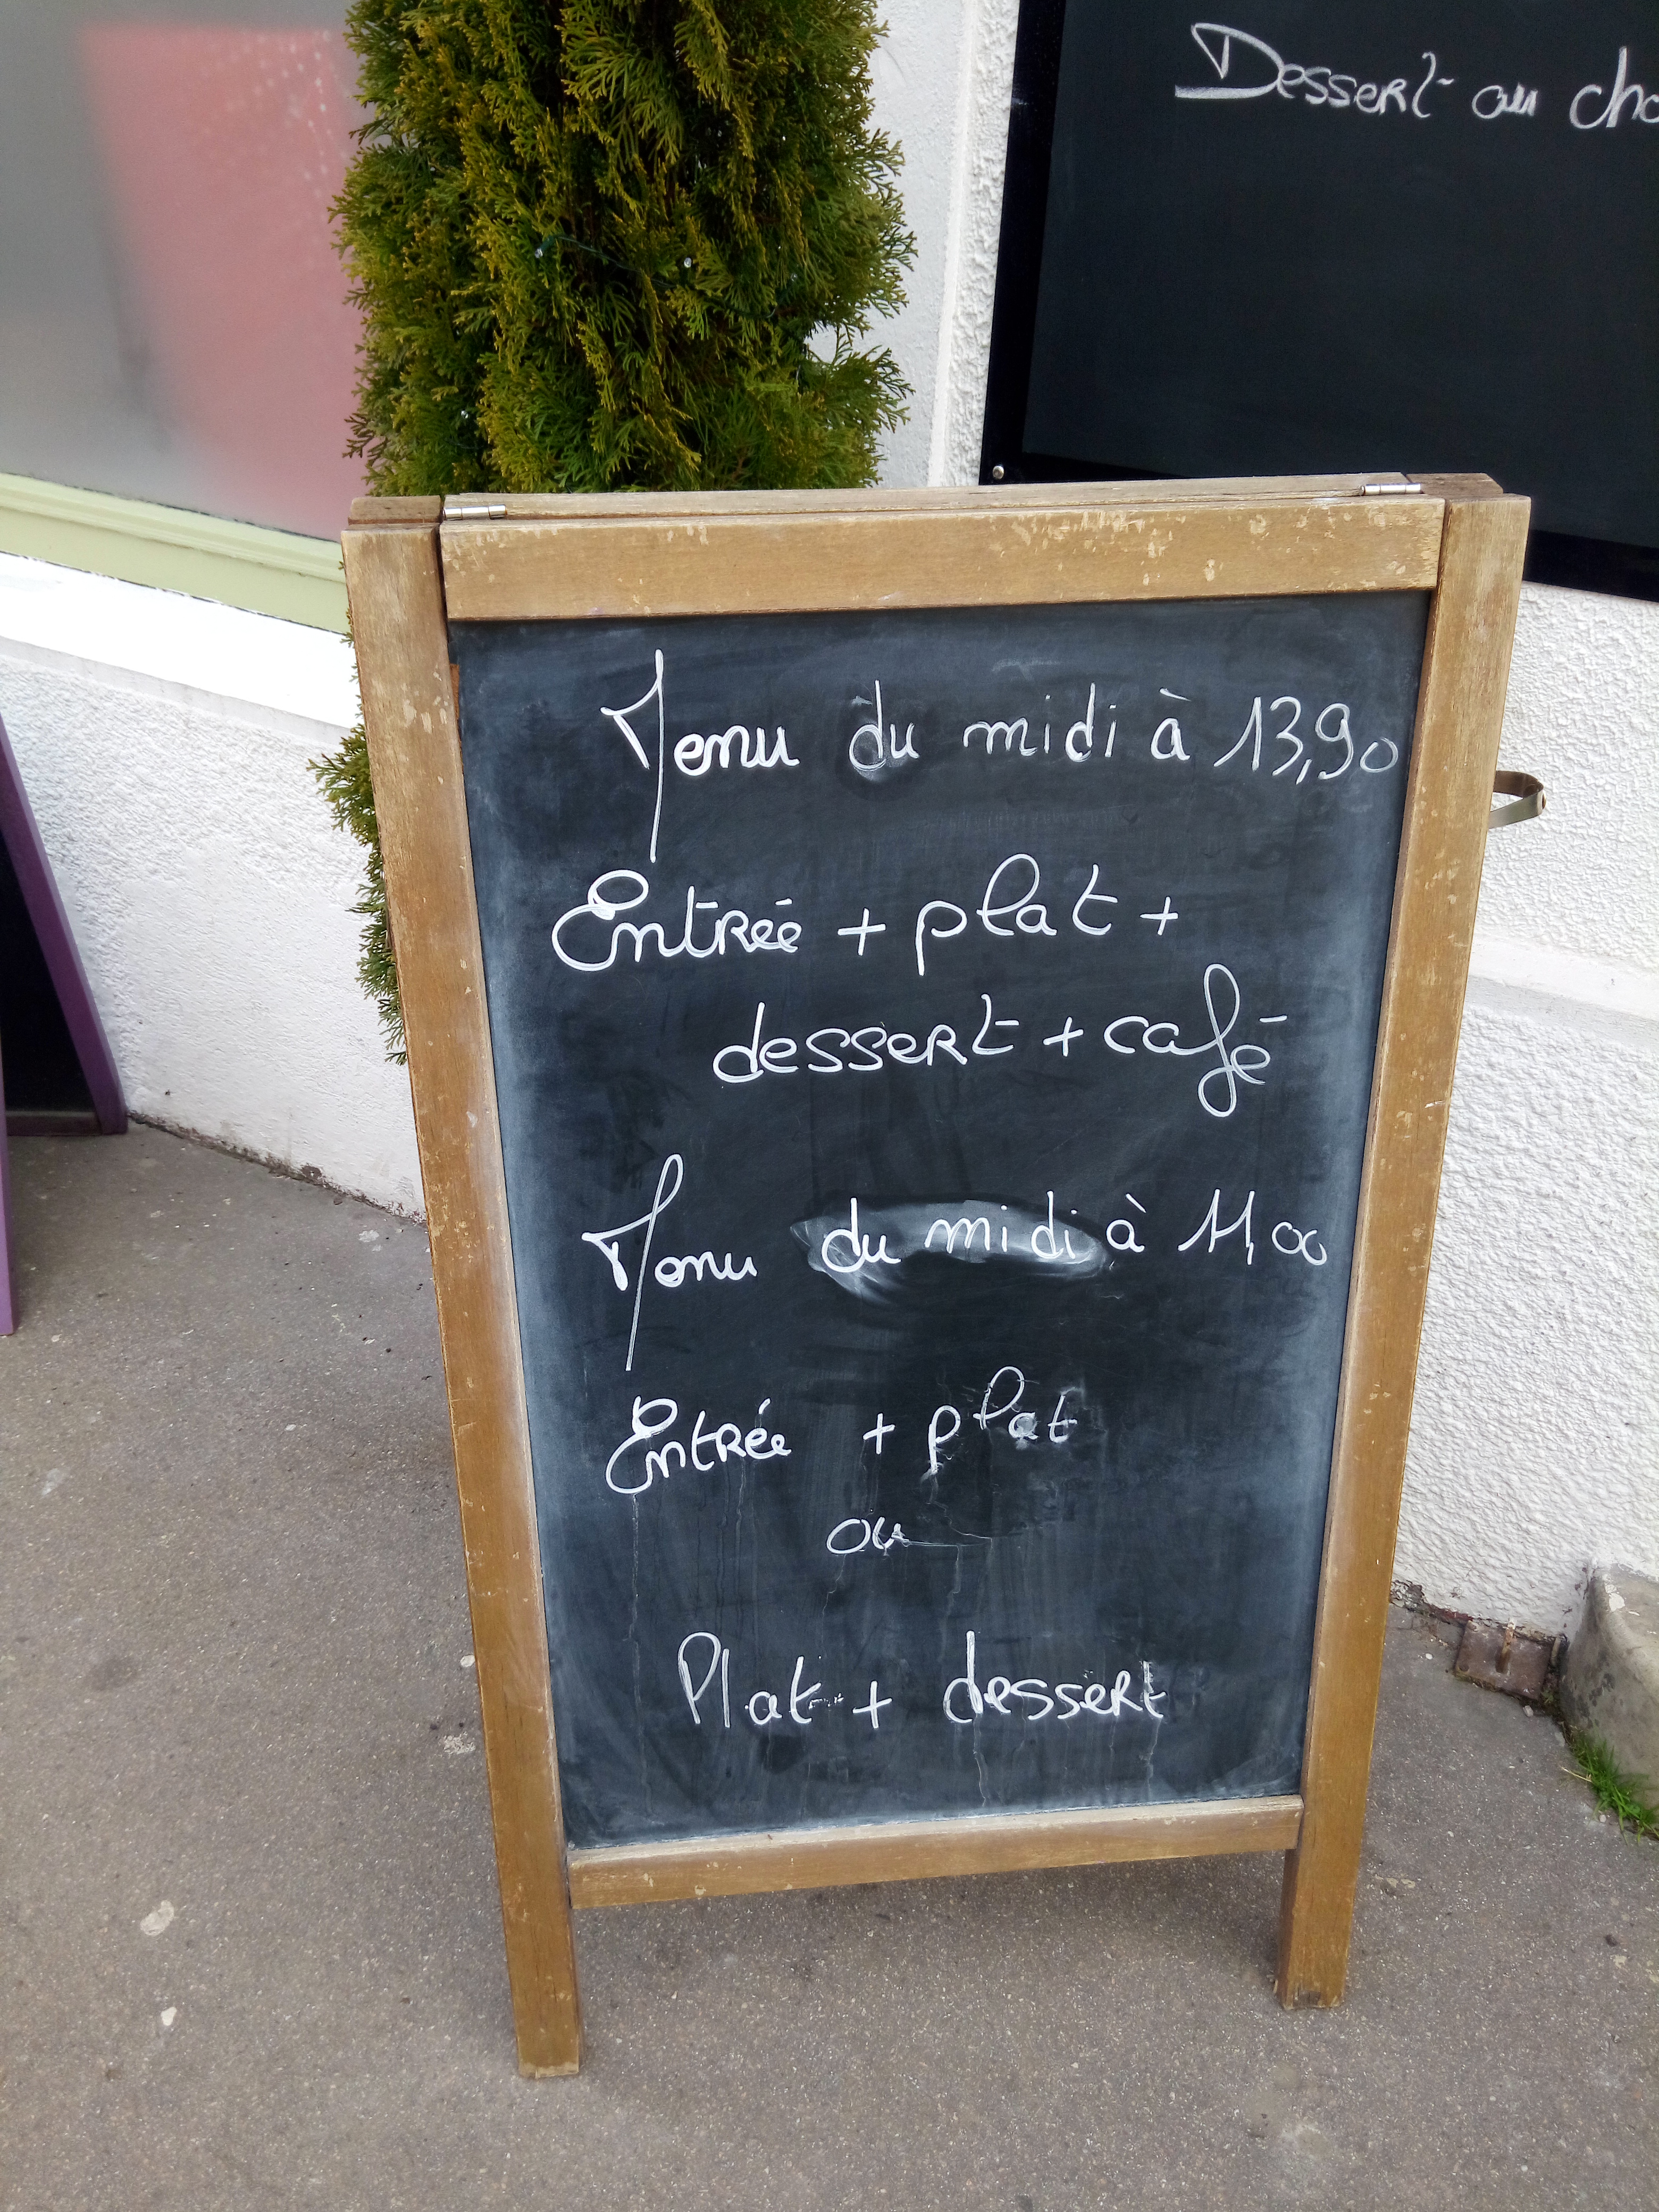 Dessert au cho
Menu du midi à 13,90
Entrée + plat +
dessert + café
Menu du midi à 11,00
Entrée + plat
ou
Plat + dessert